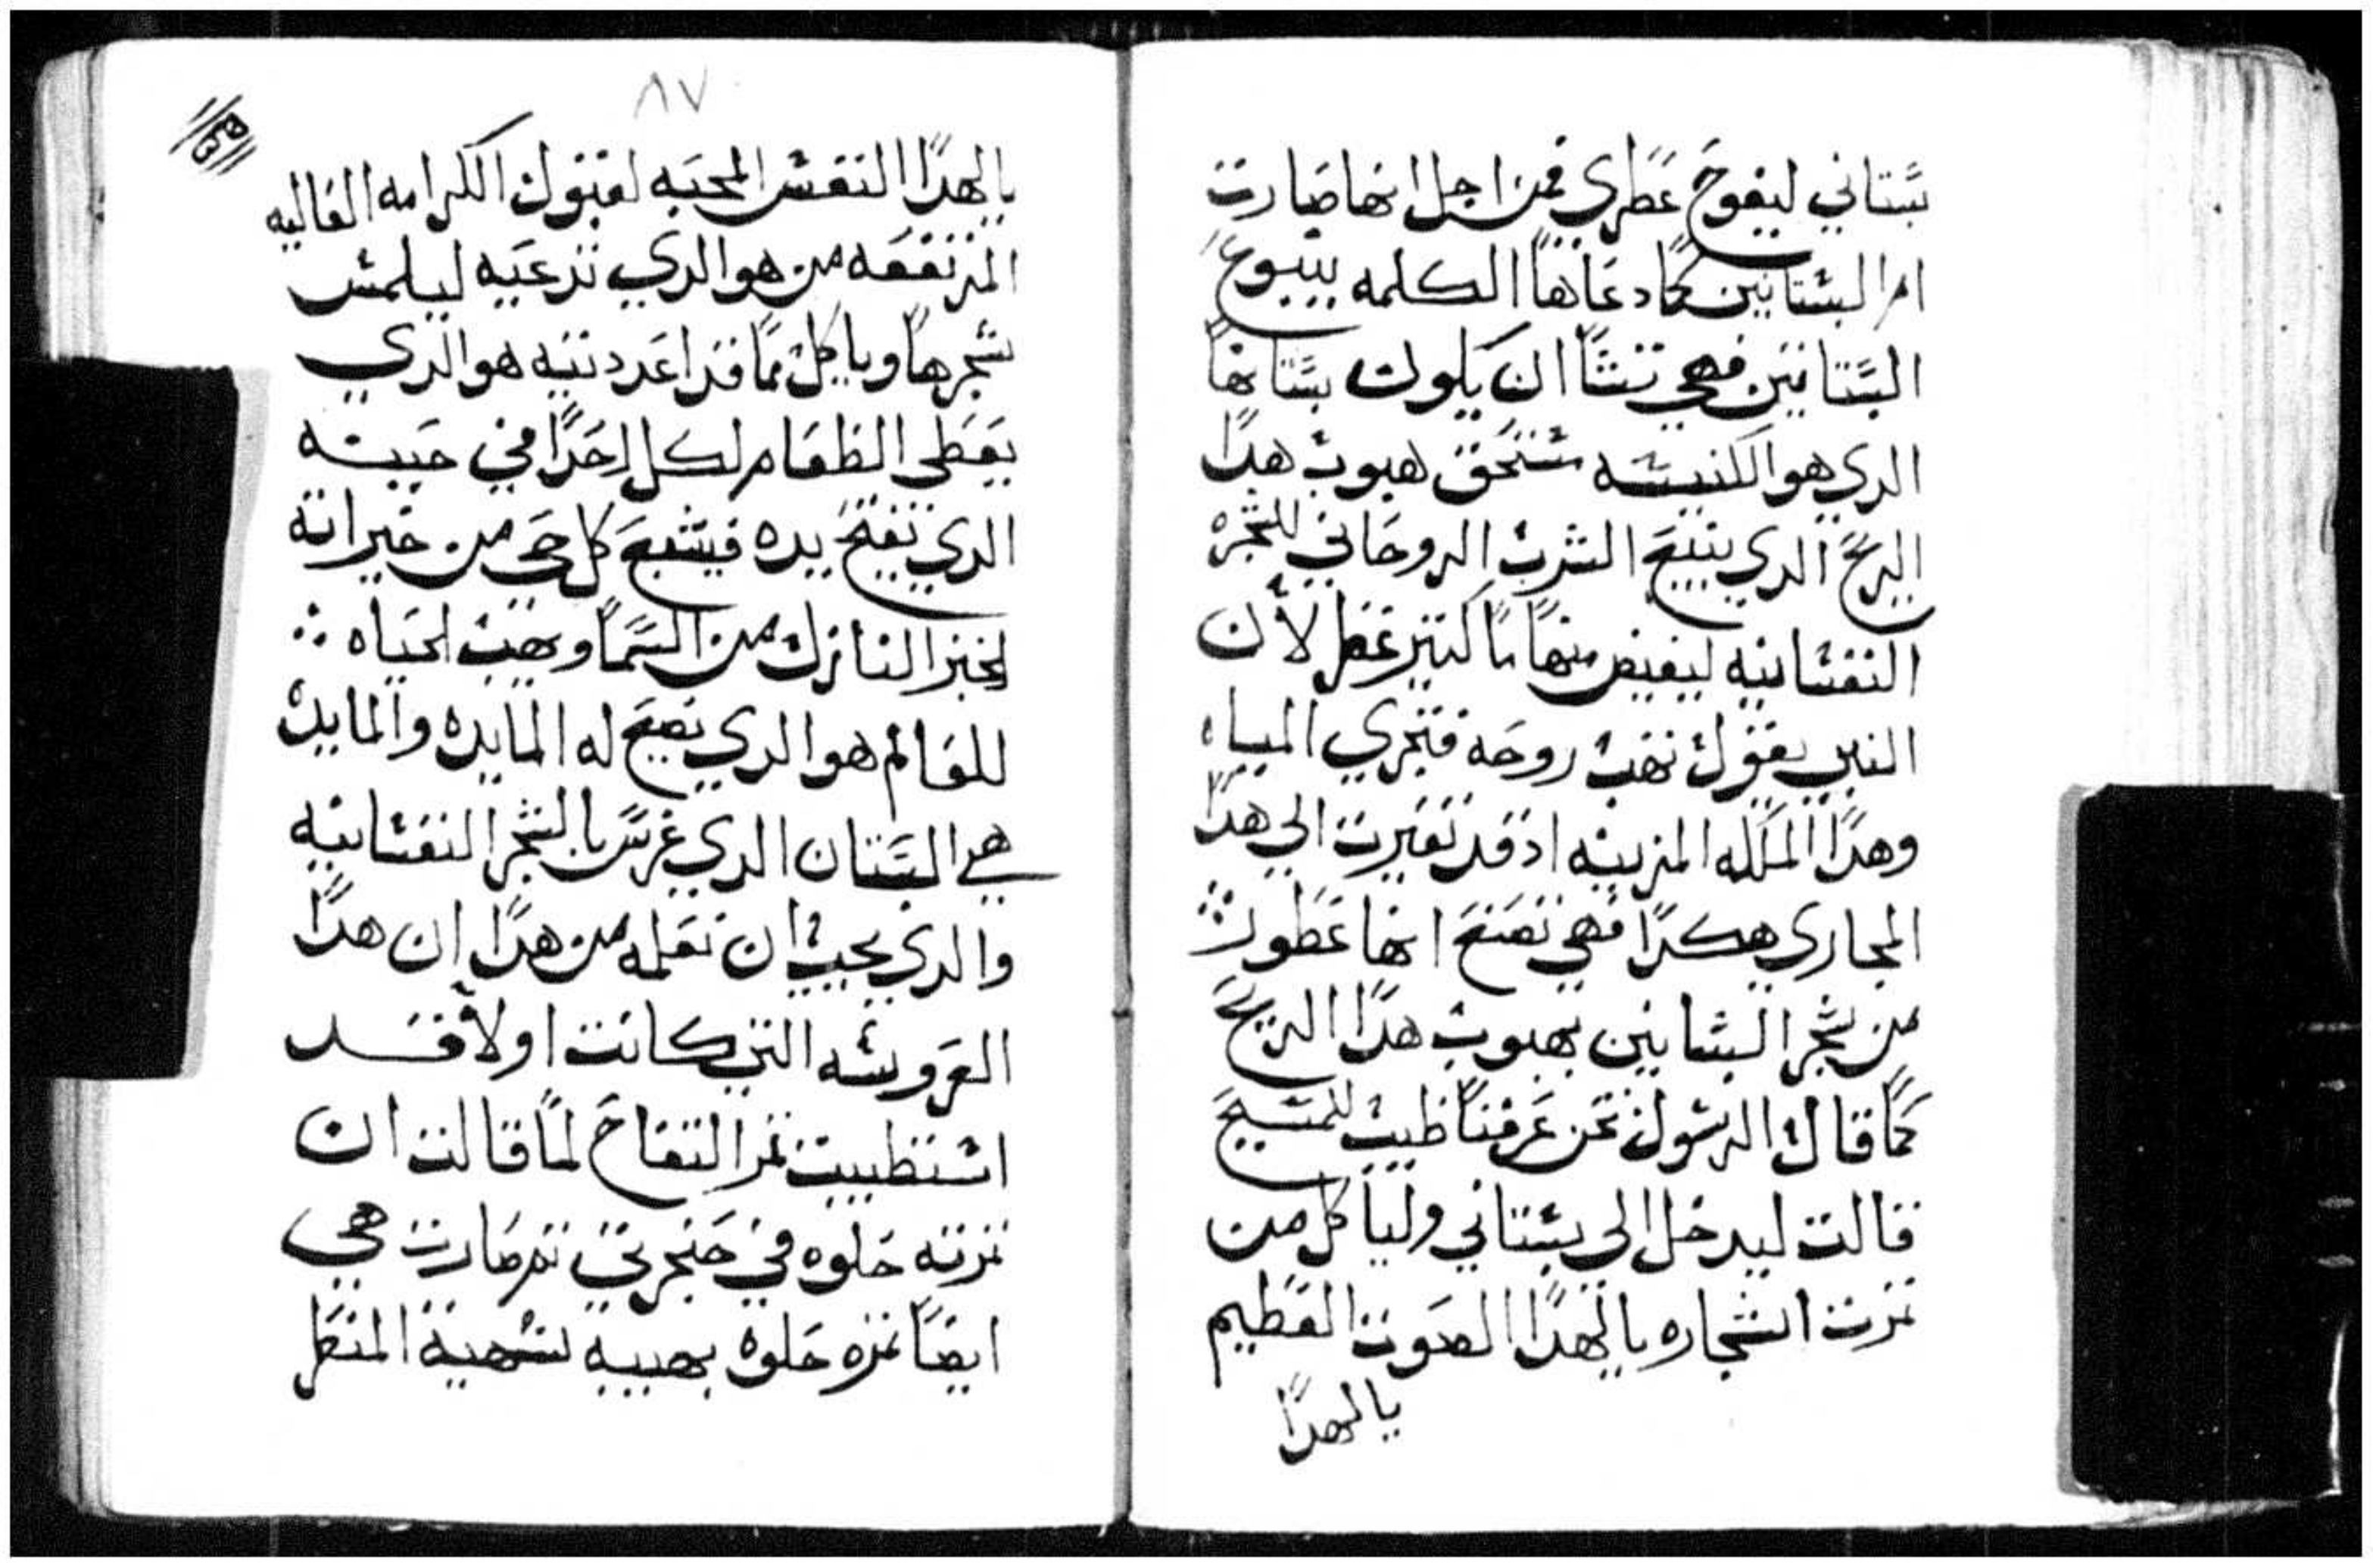 بستاني ليفوح عطري فمن اجل انها صارت
ام البستانين كما دعاها الكلمه ينبوع
البستانين فهي تشا ان يكون بستانها
الدي هو الكنيسه مستحق هبوب هدا
الريح الدي ينبع الشرب الروحاني للشجره
النفسانيه ليفيض منها ما كتير عطر لأن
النبي يقول تهب روحه فتجري المياه
وهدا الملكه المزينه اد قد تغيرت الي هدا
المجاري هكدا فهي تصنع انها عطور
من شجر البساتين بهبوب هدا الريح
كما قال الرسول نحن عرفنا طيب للمسيح
قالت ليدخل الي بستاني ولياكل من
تمرت اشجاره يا لهدا الصوت العظيم
يا لهدا
٨٧
يا لهدا النفس المحبه لقبول الكرامه الغاليه
المرتفعه من هو الدي تدعيه ليلمس
شجرها وياكل مما قد اعددتيه هو الدي
يعطي الطعام لكل احدا في حينه
الدي يفتح يده فيشبع كل حي من خيراته
الخبز النازل من السما ويهب الحياه
للعالم هو الدي تصنع له المايده والمايده
هي البستان الدي غرس بالشجر النفسانيه
والدي يجب ان نعلمه من هدا ان هدا
العروسه التي كانت اولا قد
استطيبت تمر التفاح لما قالت ان
تمرته حلوه في حنجرتي تم صارت هي
ايضا تمره حلوه بهييه شهية المنظر